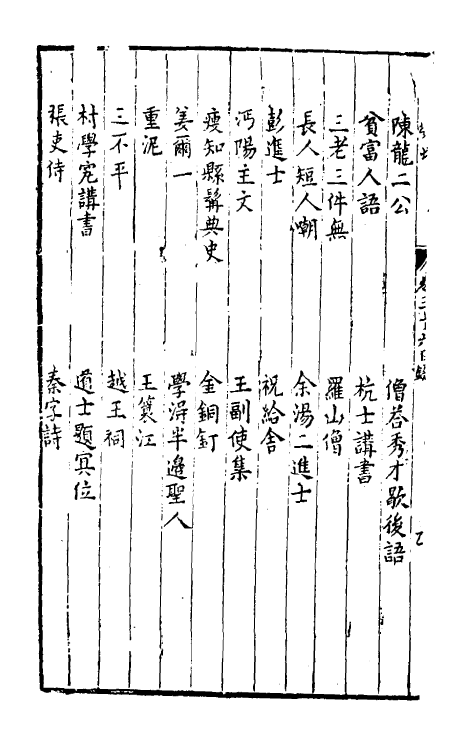 陳龍二公　僧荅秀才歇後語
貧富人語　杭士講書
三老三件無　羅山僧
長人短人嘲　余湯二進士
彭進士　祝給舍
沔陽主文　王副使集
瘦知縣髯典史　金銅釘
姜爾一　學淂半邉聖人
重泥　王襄江
三不平　越王祠
村學究講書　道士題㝠位
張吏侍　秦字詩